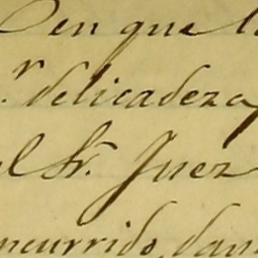 en que l
r delicadeza
el Sr. Juez
ncurrido, dan